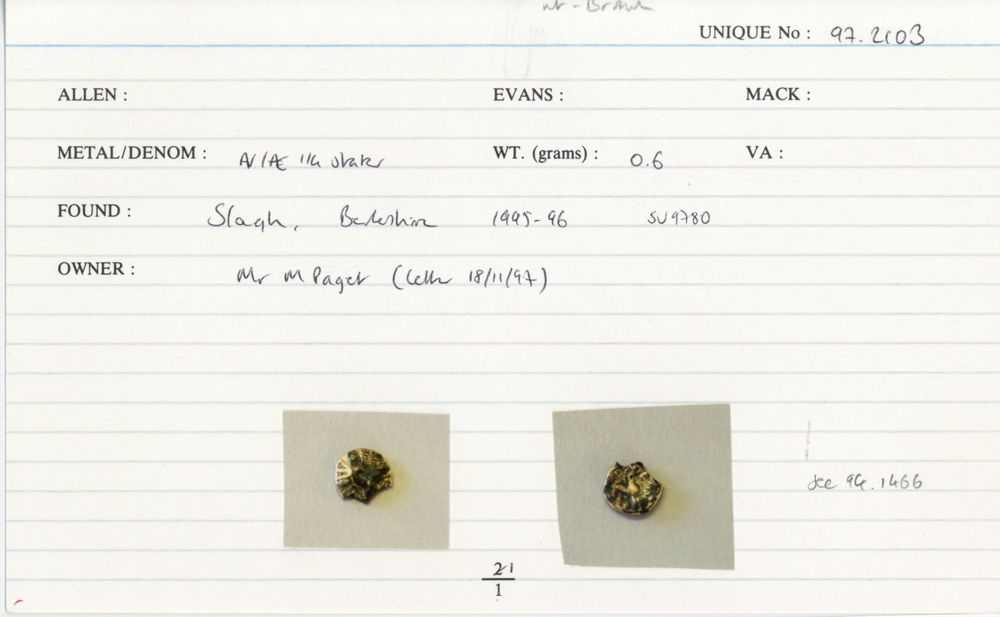 UNIQUE No : 97.2103
ALLEN : EVANS : MACK :
METAL/DENOM : AV/Æ 1/4 stater WT. (grams) : 0.6 VA :
FOUND : Slough, Berkshire 1995-96 SU9780
OWNER : Mr M Paget (letter 18/11/97)
see 94.1466
21
1